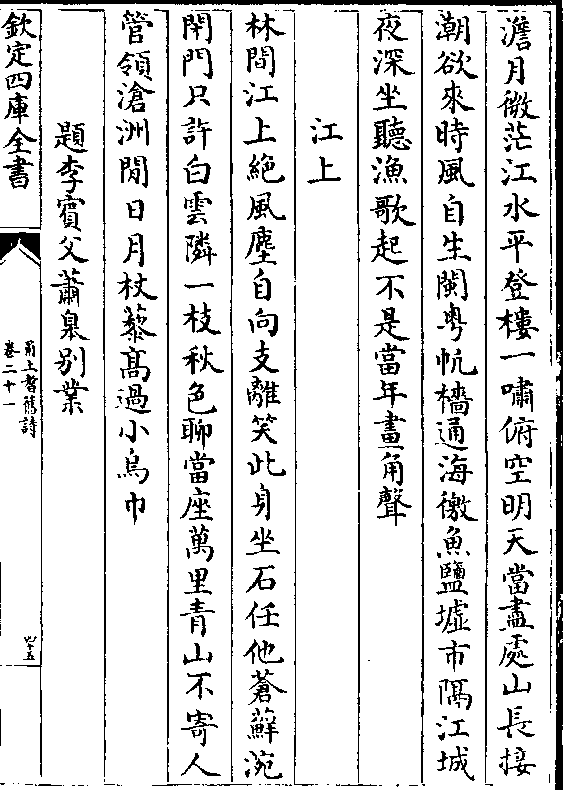 澹月微茫江水平登樓一嘯俯空明天當盡處山長接
潮欲來時風自生閩粤帆檣通海徼魚鹽墟市隔江城
夜深坐聽漁歌起不是當年畫角聲
江上
林間江上絶風塵自向支離笑此身坐石任他蒼蘚涴
閉門只許白雲隣一枝秋色聊當座萬里青山不寄人
管領滄洲閒日月杖藜髙過小烏巾
題李賓父蕭臯别業
欽定四庫全書
甬上耆舊詩
卷二十一
四十五